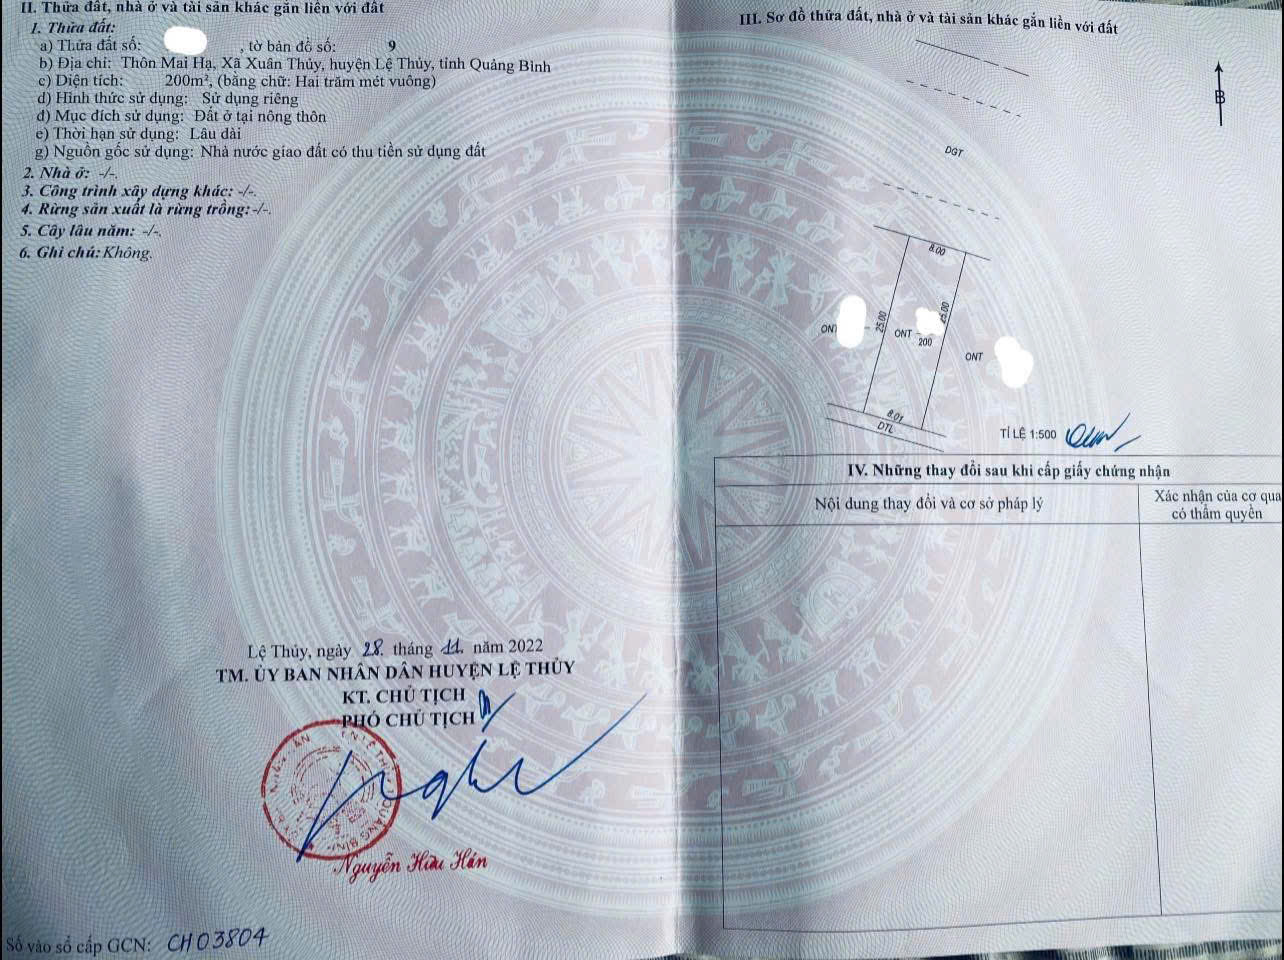 II. Thửa đất, nhà ở và tài sản khác gắn liền với đất
1. Thửa đất:
a) Thửa đất số: , tờ bản đồ số: 9
b) Địa chỉ: Thôn Mai Hạ, Xã Xuân Thủy, huyện Lệ Thủy, tỉnh Quảng Bình
c) Diện tích: 200m², (bằng chữ: Hai trăm mét vuông)
d) Hình thức sử dụng: Sử dụng riêng
đ) Mục đích sử dụng: Đất ở tại nông thôn
e) Thời hạn sử dụng: Lâu dài
g) Nguồn gốc sử dụng: Nhà nước giao đất có thu tiền sử dụng đất
2. Nhà ở: -/-.
3. Công trình xây dựng khác: -/-.
4. Rừng sản xuất là rừng trồng: -/-.
5. Cây lâu năm: -/-.
6. Ghi chú: Không.
Lệ Thủy, ngày 28. tháng 11. năm 2022
TM. ỦY BAN NHÂN DÂN HUYỆN LỆ THỦY
KT. CHỦ TỊCH
PHÓ CHỦ TỊCH
Nguyễn Hữu Hán
Số vào sổ cấp GCN: CH03804
III. Sơ đồ thửa đất, nhà ở và tài sản khác gắn liền với đất
B
DGT
8.00
25.00
25.00
ONT
ONT
200
ONT
8.01
DTL
TỈ LỆ 1:500
IV. Những thay đổi sau khi cấp giấy chứng nhận
Nội dung thay đổi và cơ sở pháp lý
Xác nhận của cơ qua
có thẩm quyền